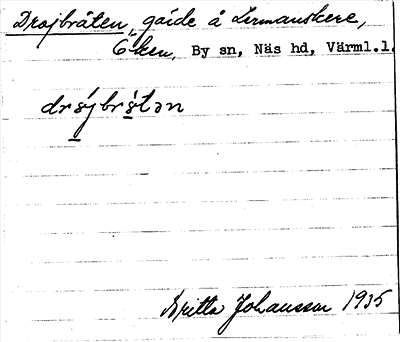 Drojbråten, gärde å Lermanskere,
Eken, By sn, Näs hd, Värml.l.
Britta Johansson 1935